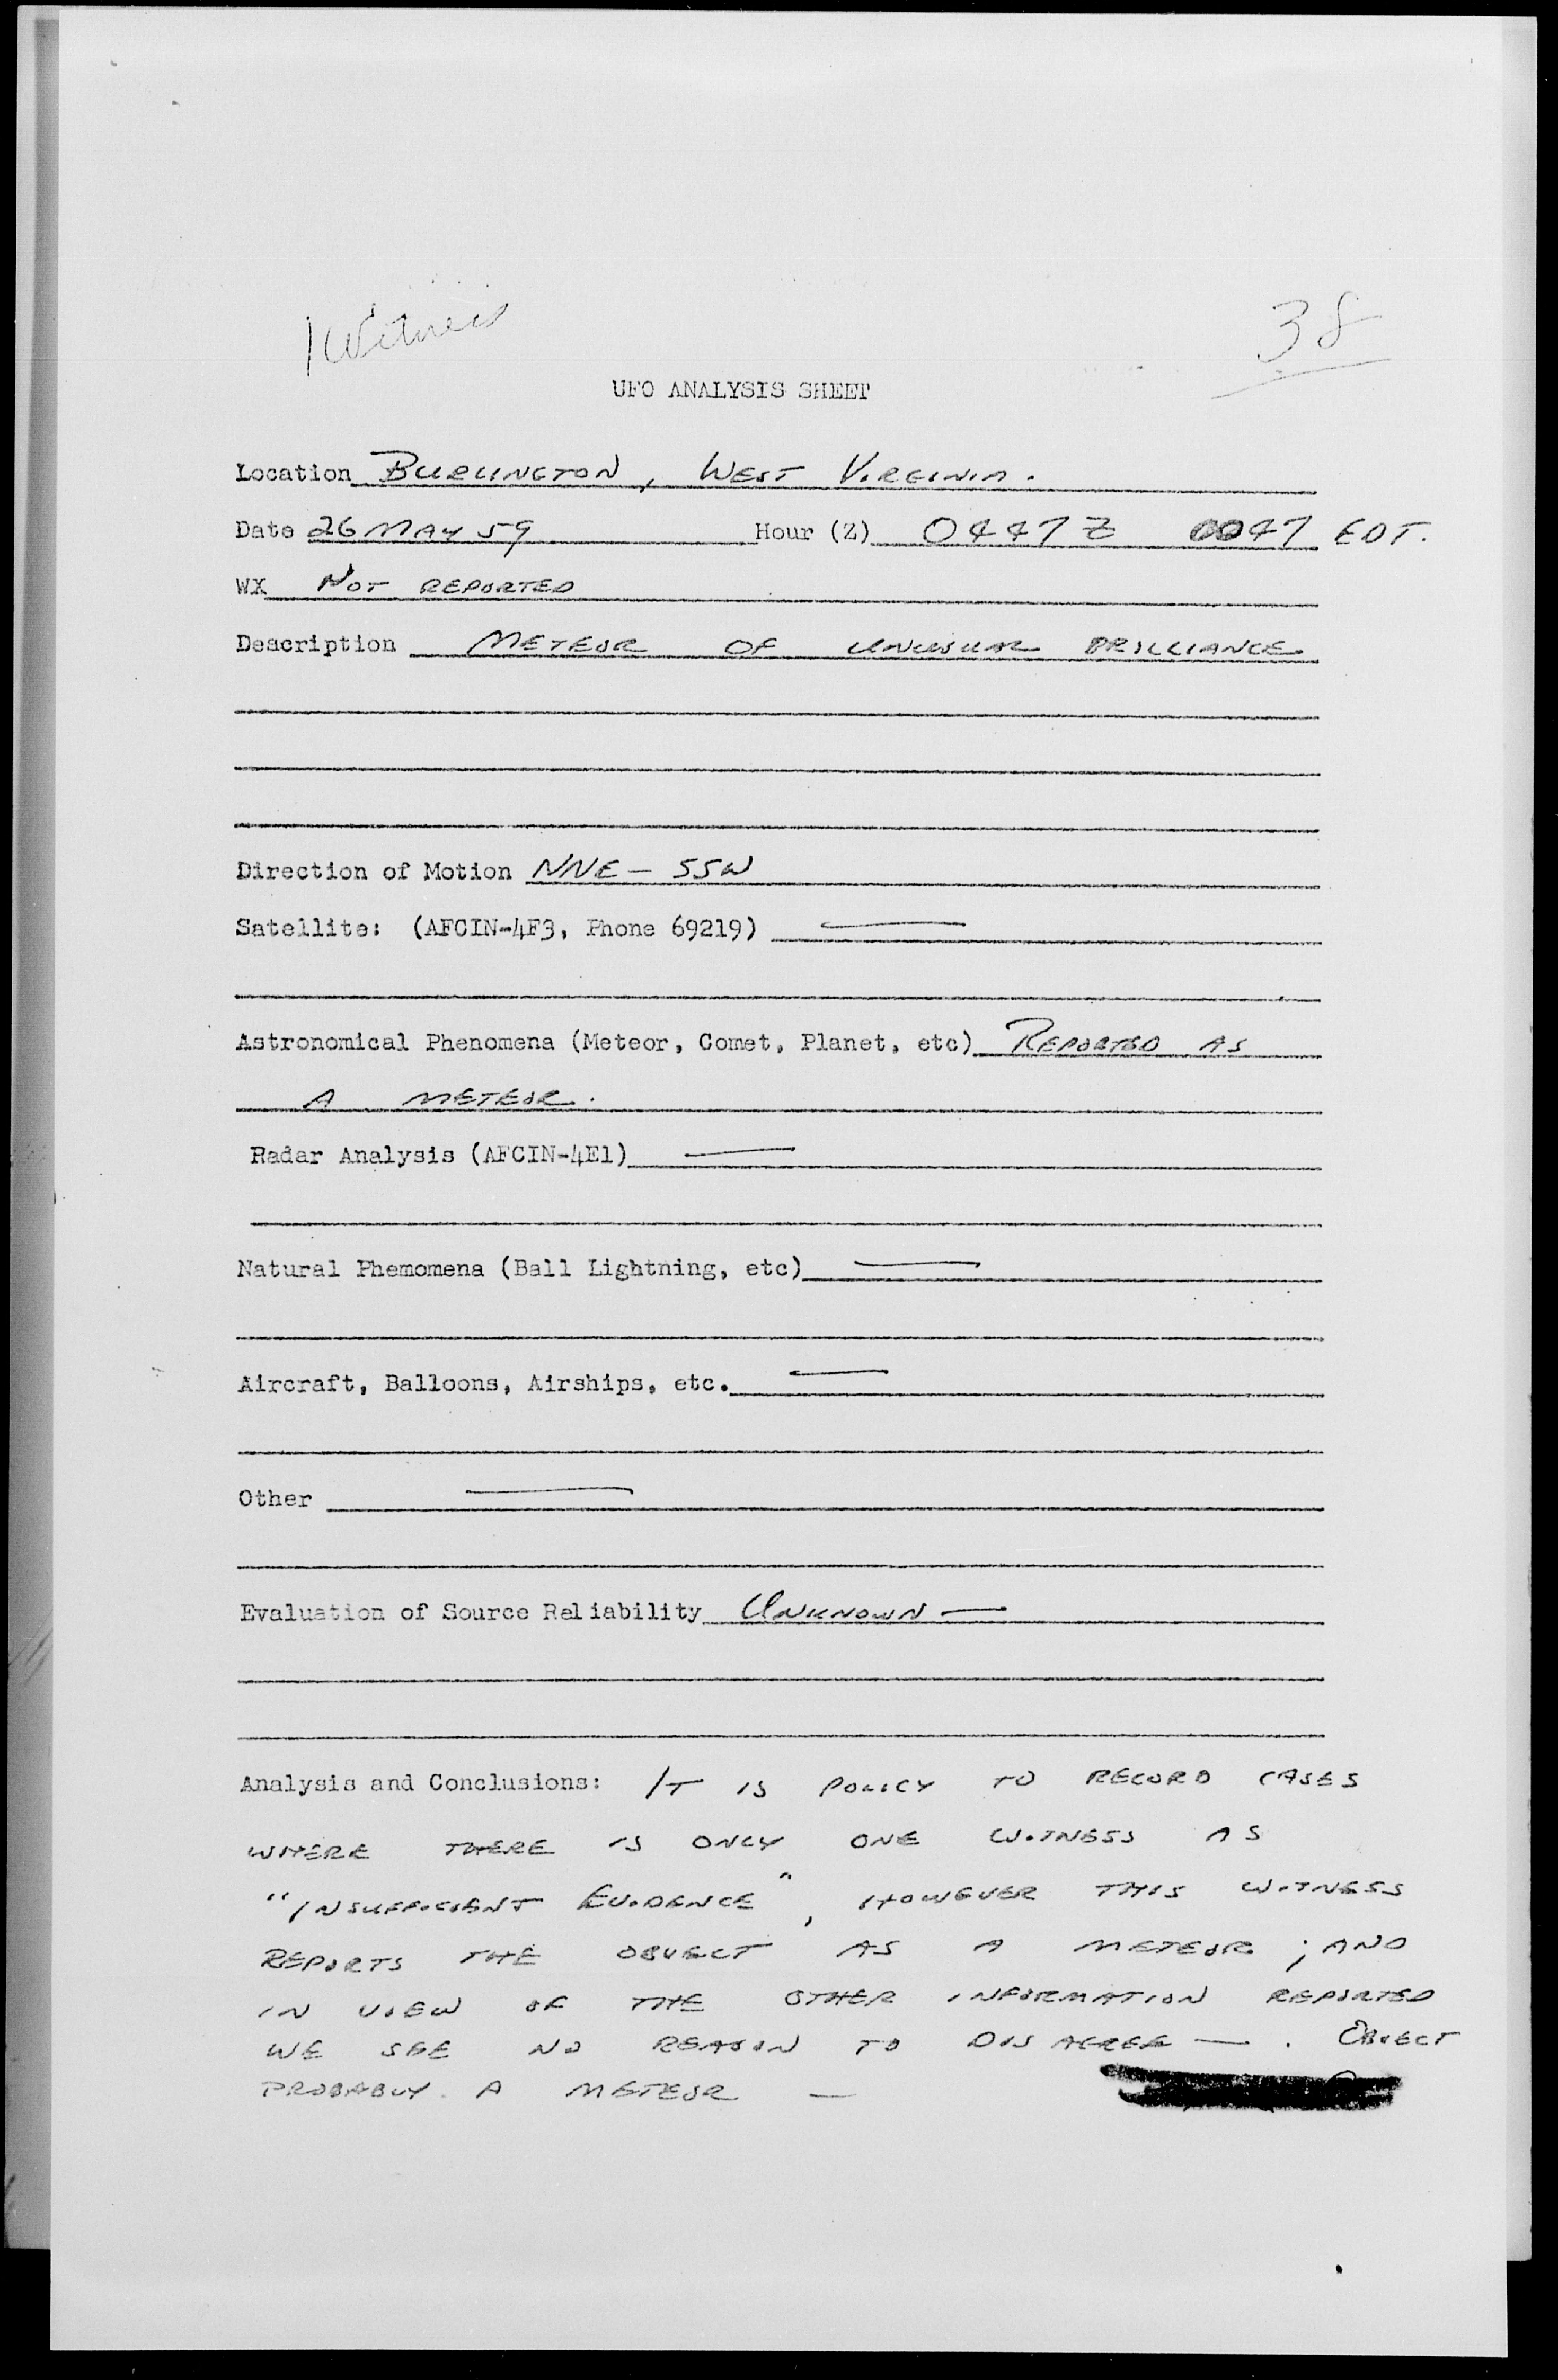 1 Witness
38
UFO ANALYSIS SHEET
Location BURLINGTON, WEST VIRGINIA.
Date 26 MAY 59 Hour (Z) 0447 Z 0047 EDT.
WX NOT REPORTED
Description METEOR OF UNUSUAL BRILLIANCE
Direction of Motion NNE – SSW
Satellite: (AFCIN-4F3, Phone 69219) —
Astronomical Phenomena (Meteor, Comet, Planet, etc) REPORTED AS
A METEOR.
Radar Analysis (AFCIN-4E1) —
Natural Phemomena (Ball Lightning, etc) —
Aircraft, Balloons, Airships, etc. —
Other —
Evaluation of Source Reliability UNKNOWN —
Analysis and Conclusions: IT IS POLICY TO RECORD CASES
WHERE THERE IS ONLY ONE WITNESS AS
"INSUFFICIENT EVIDENCE", HOWEVER THIS WITNESS
REPORTS THE OBJECT AS A METEOR ; AND
IN VIEW OF THE OTHER INFORMATION REPORTED
WE SEE NO REASON TO DISAGREE — . OBJECT
PROBABLY A METEOR —